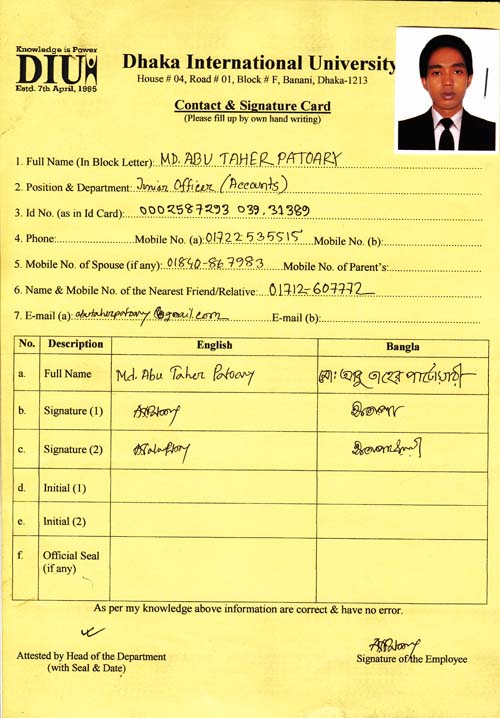 Knowledge is Power
DIU
Estd. 7th April, 1995
Dhaka International University
House # 04, Road # 01, Block # F, Banani, Dhaka-1213
Contact & Signature Card
(Please fill up by own hand writing)
1. Full Name (In Block Letter): MD. ABU TAHER PATOARY
2. Position & Department: Junior Officer (Accounts)
3. Id No. (as in Id Card): 0002587293 039.31389
4. Phone: Mobile No. (a): 01722-535515 Mobile No. (b):
5. Mobile No. of Spouse (if any): 01840-867983 Mobile No. of Parent's:
6. Name & Mobile No. of the Nearest Friend/Relative: 01712-607772
7. E-mail (a): abutaherpatoary@gmail.com E-mail (b):
No. Description English Bangla
a. Full Name Md. Abu Taher Patoary মো: আবু তাহের পাটোয়ারী
b. Signature (1)
c. Signature (2)
d. Initial (1)
e. Initial (2)
f. Official Seal
(if any)
As per my knowledge above information are correct & have no error.
Attested by Head of the Department
(with Seal & Date)
Signature of the Employee